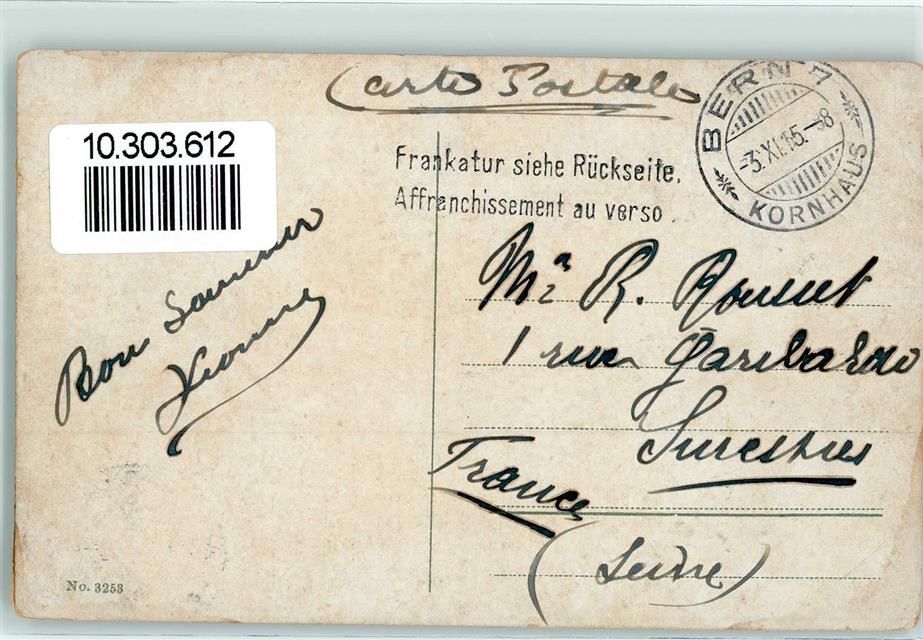 Carte Postale
10.303.612
Frankatur siehe Rückseite.
Affranchissement au verso.
BERN 7
-3.XI.15.-8
KORNHAUS
Bon Souvenir
Yvonne
Mr R. Rousset
1 rue Garibaldi
Suresnes
France
(Seine)
No. 3253